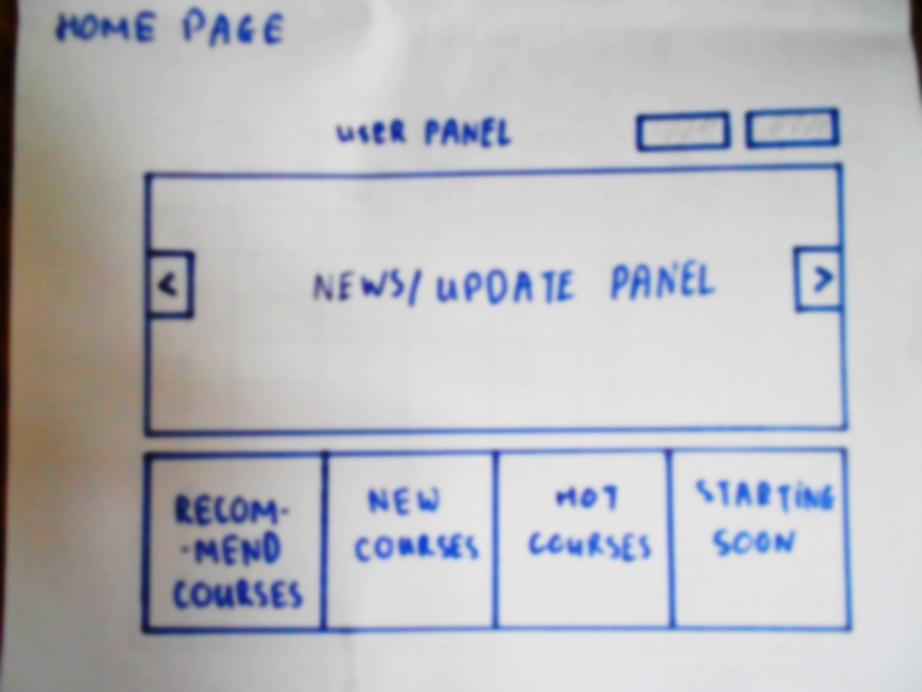 HOME PAGE
USER PANEL
<
NEWS/UPDATE PANEL
>
RECOM-
-MEND
COURSES
NEW
COURSES
HOT
COURSES
STARTING
SOON